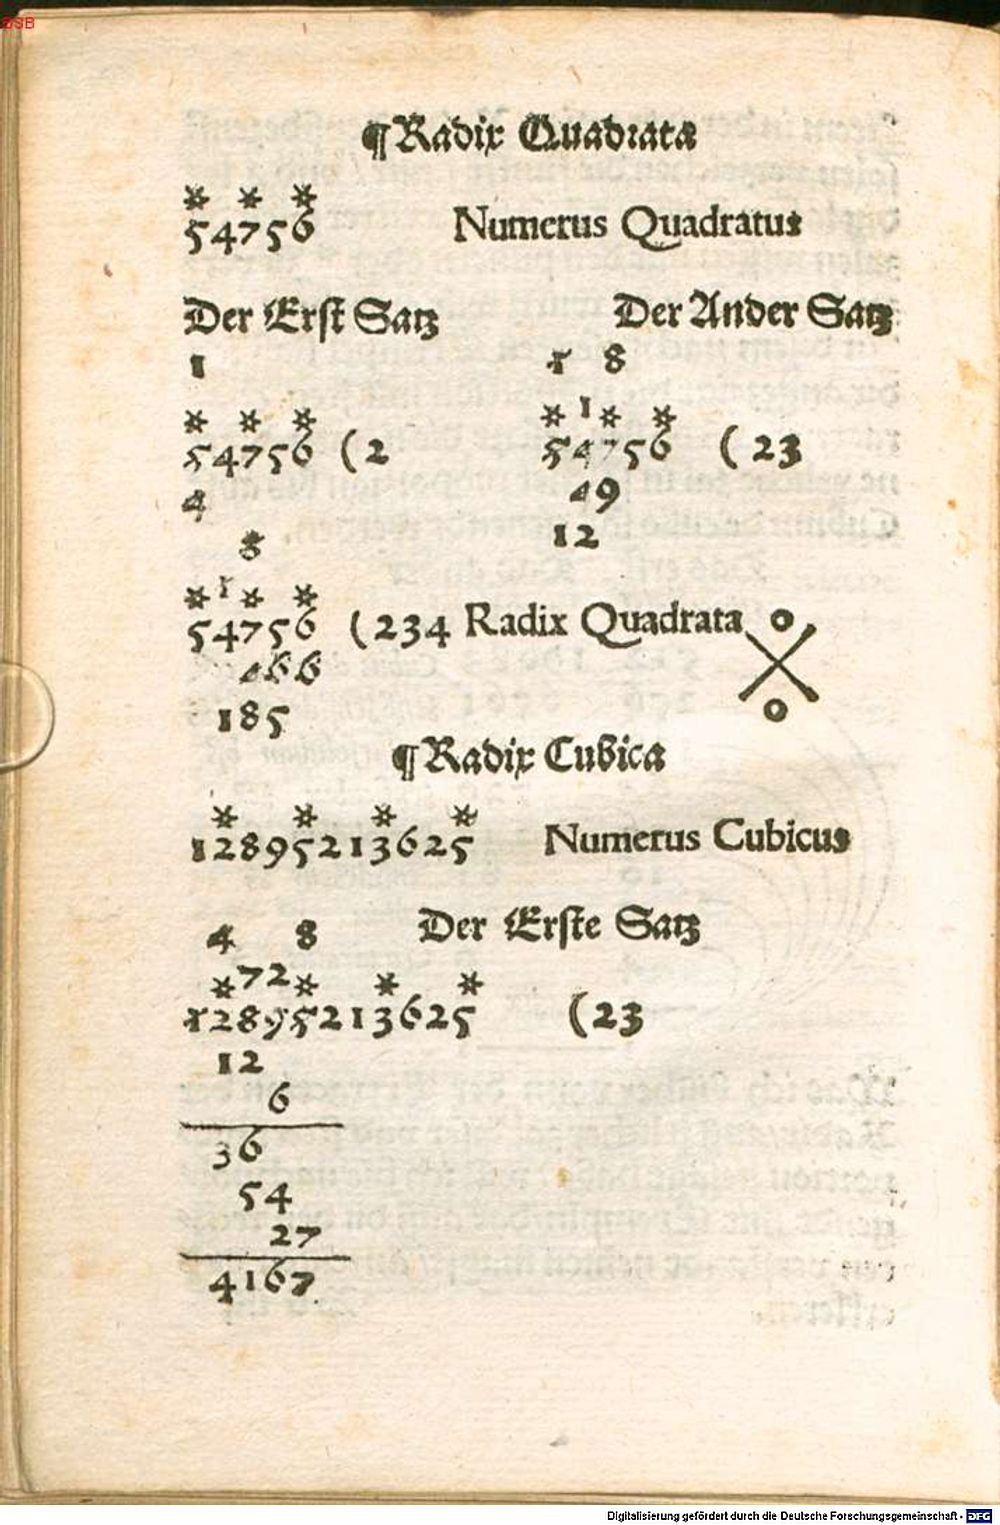 BSB
¶ Radix Quadrata
* * *
54756 Numerus Quadratus
Der Erst Satz Der Ander Satz
1 1 8
* * * * 1 * *
54756 (2 54756 (23
4 49
12
8
* 1 * *
54756 (234 Radix Quadrata 0
466 0
185
¶ Radix Cubica
* * * *
12895213625 Numerus Cubicus
4 8 Der Erste Satz
* 72 * * *
12895213625 (23
12
6
36
54
27
4167
Digitalisierung gefördert durch die Deutsche Forschungsgemeinschaft - DFG